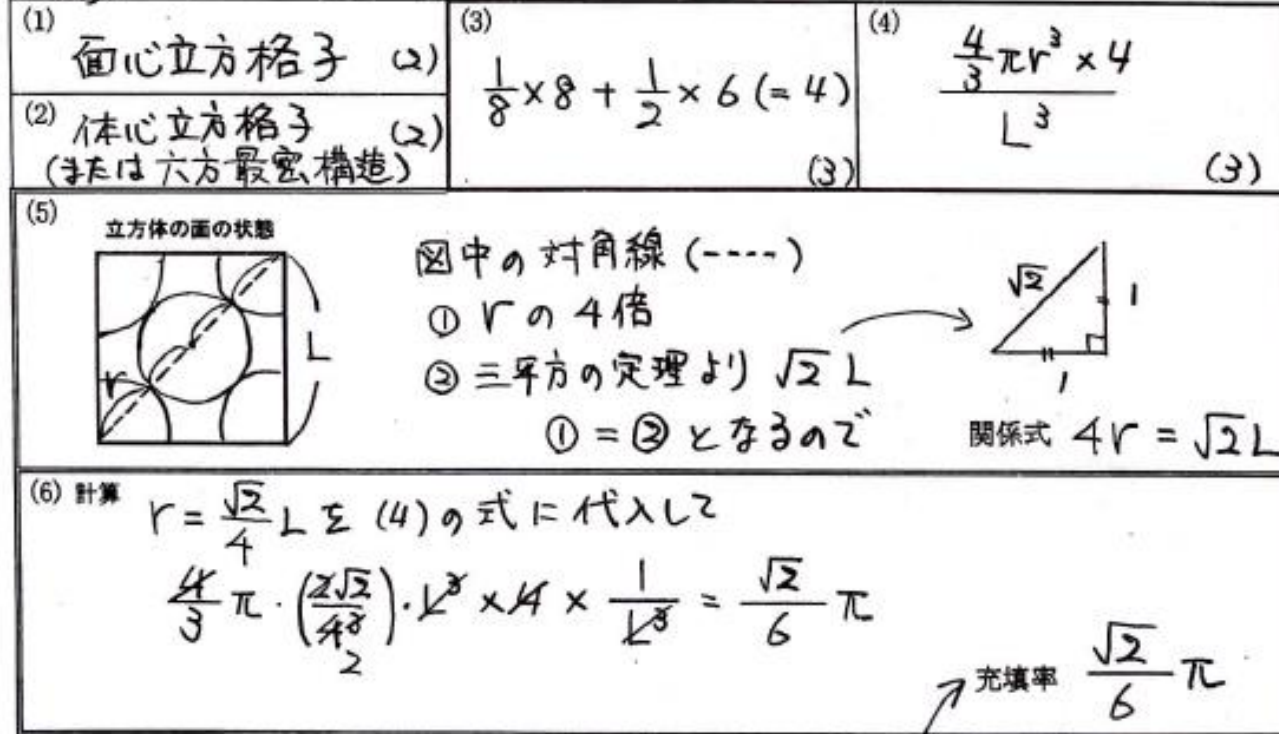 (1)
面心立方格子 (2)
(2) 体心立方格子 (2)
(または六方最密構造)
(3)
1/8 × 8 + 1/2 × 6 (= 4)
(3)
(4)
4/3 πr³ × 4
L³
(3)
(5)
立方体の面の状態
r
L
図中の対角線 (----)
① rの4倍
② 三平方の定理より √2 L
① = ② となるので
√2
1
1
関係式 4r = √2L
(6) 計算
r = √2/4 L を (4)の式に代入して
4/3 π・(2√2/4³)・L³ × 4 × 1/L³ = √2/6 π
2
充填率 √2/6 π